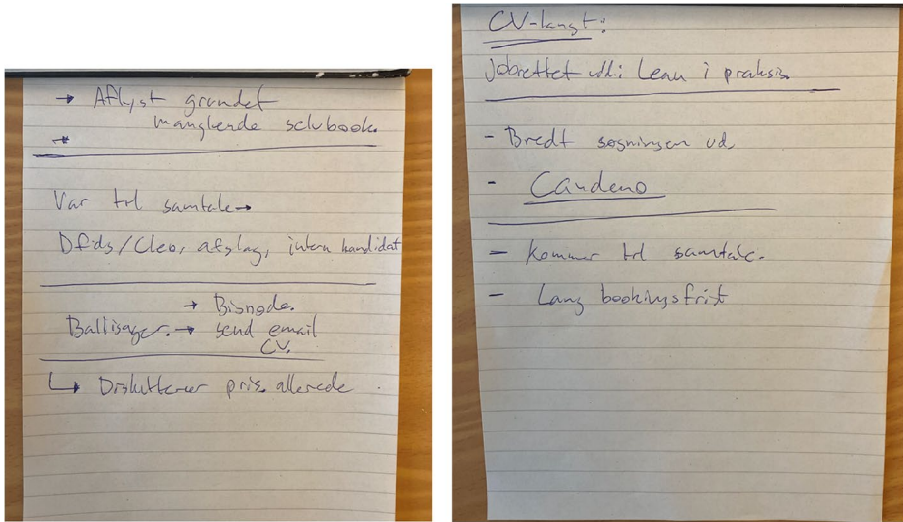 → Aflyst grundet
manglende selvbook.
→
Var til samtale →
Dfds/Cleo, afslag, intern kandidat
→ Bisnode.
Ballisager. → send email
CV.
↳ Diskutterer pris allerede.
CV-langt:
Jobrettet udd: Lean i praksis.
- Bredt søgningen ud
-
- Kommer til samtale.
- Lang bookingsfrist